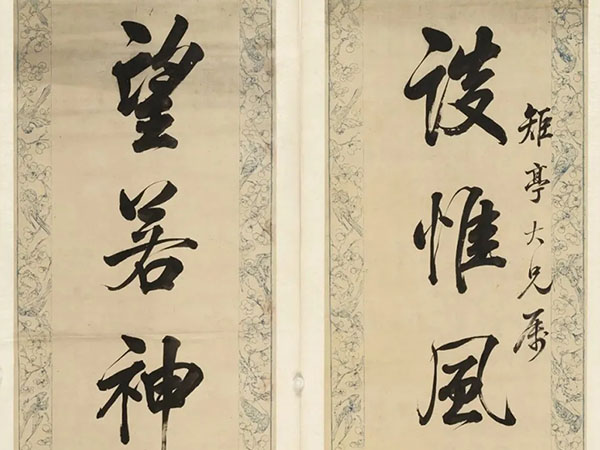 談惟風
矩亭大兄属
望若神